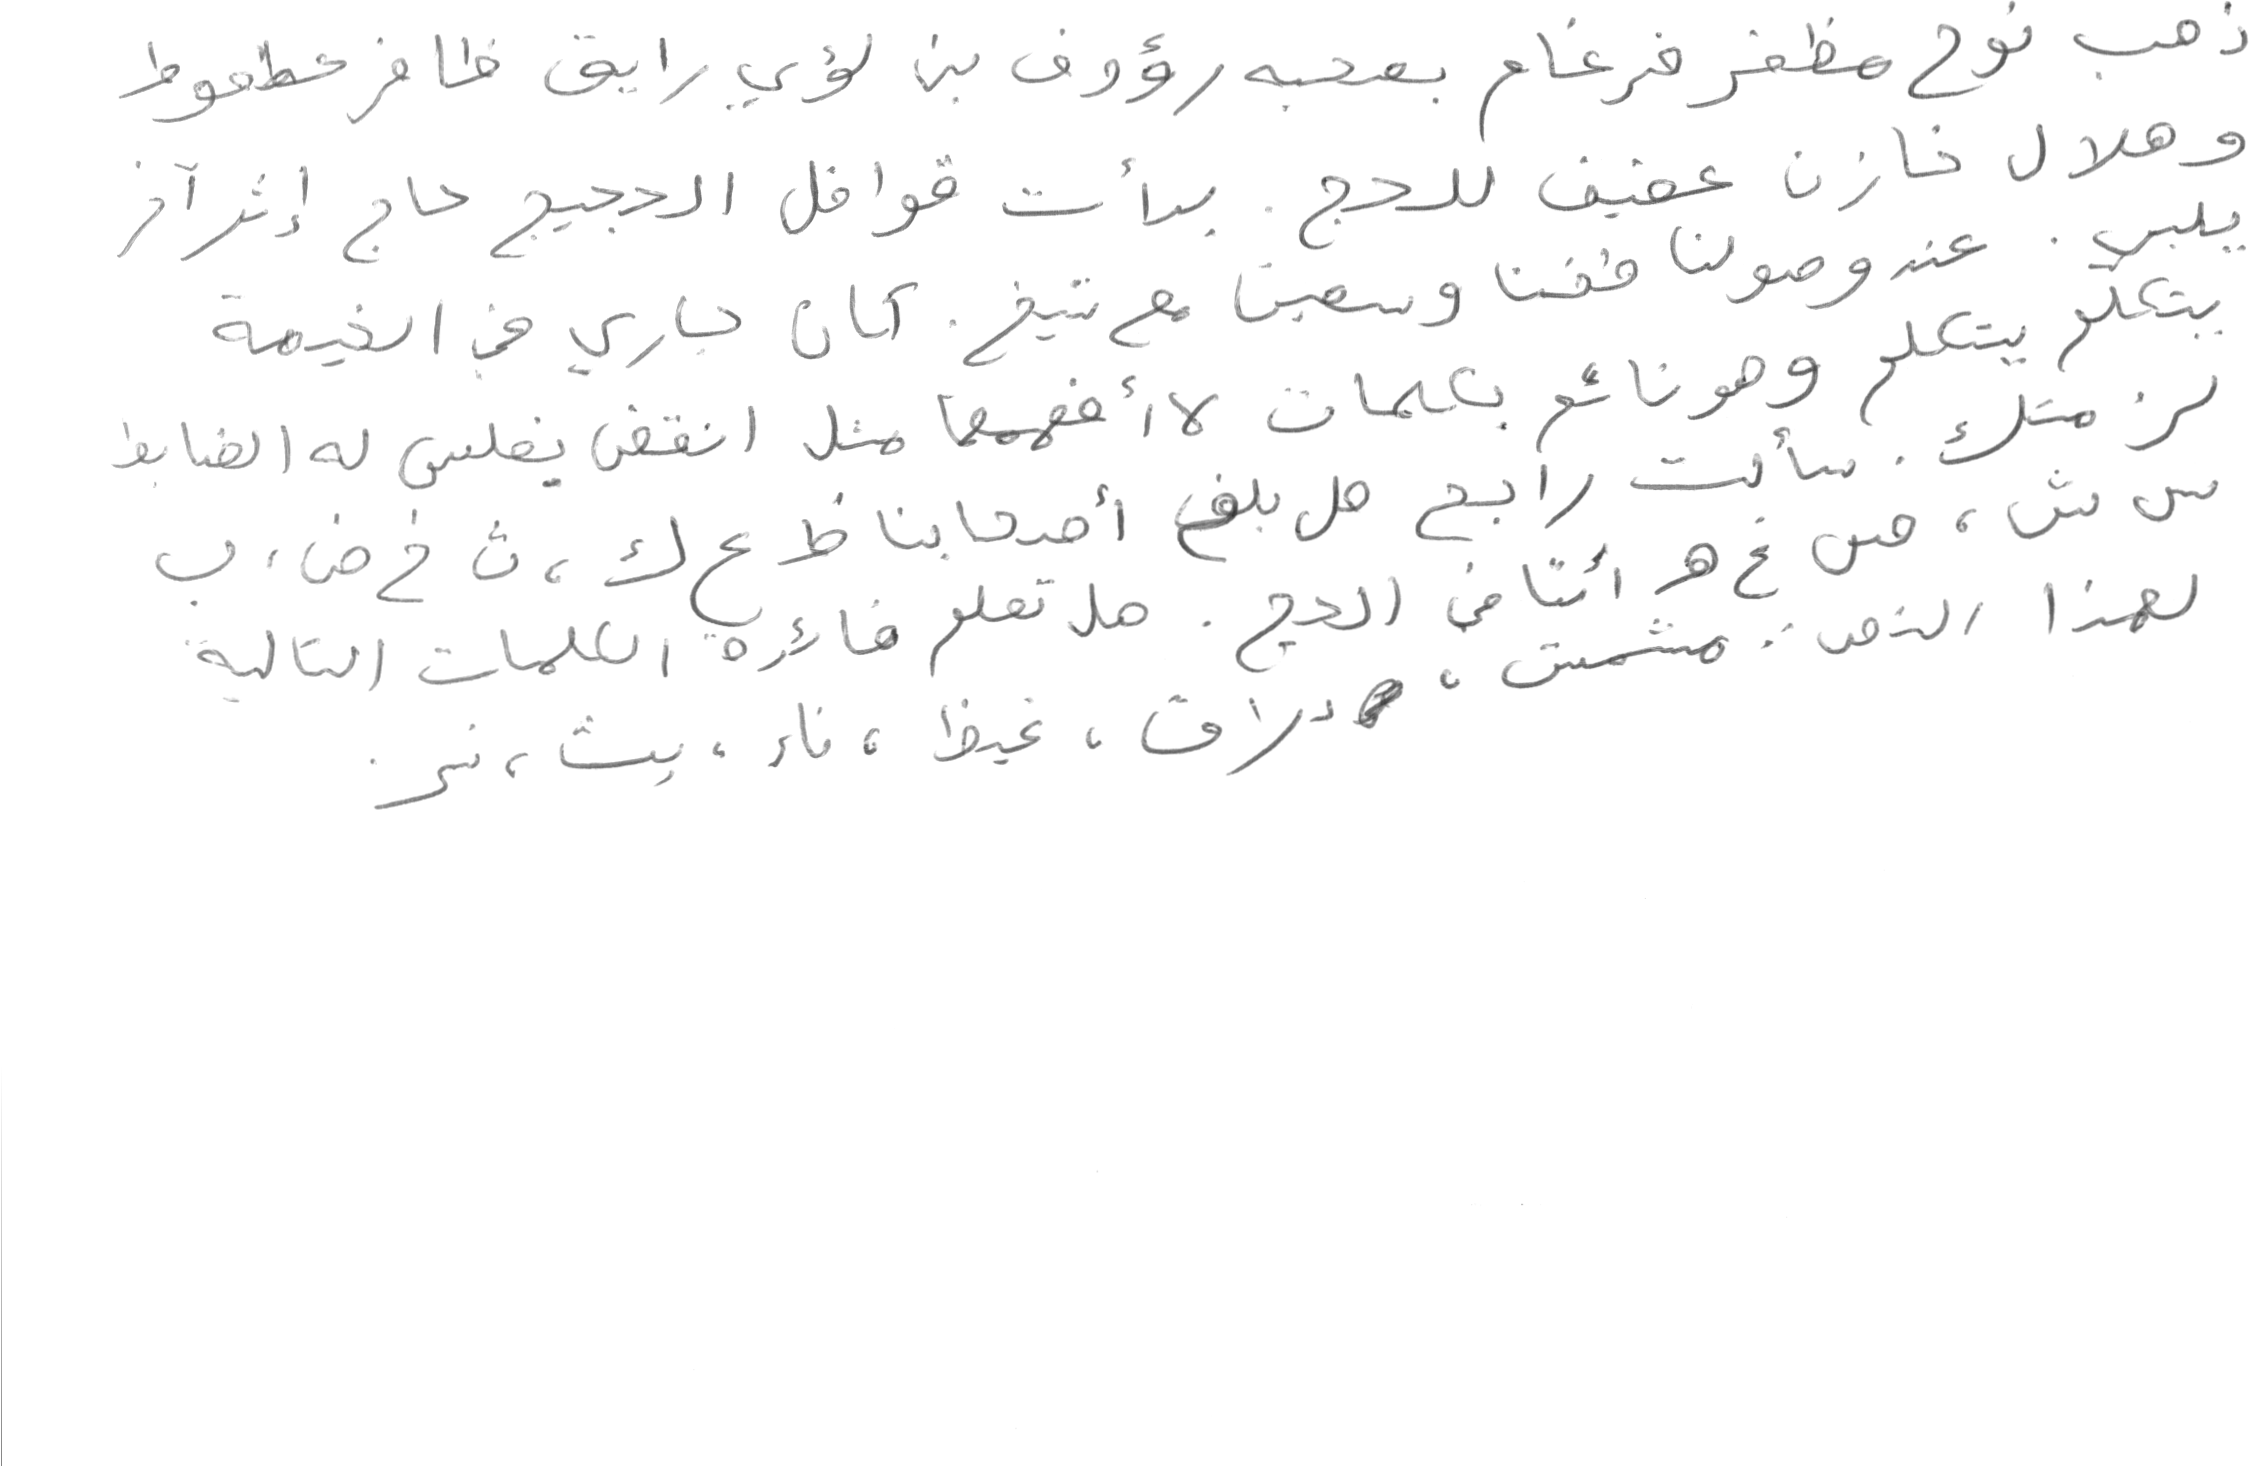 ذهب نوح مظفر ضرغام بصحبه رؤوف بن لؤي رايق ظافر عطعوط
وهلال خازن عفيف للحج. بدأت قوافل الحجيج حاج إثر آخر
يلبي. عند وصولنا طفنا وسعينا مع شيخ. كان جاري في الخيمة
يتكلم يتكلم وهو نائم بكلمات لا أفهمها مثل انقض يغلس له الضابط
لز متك. سألت رابح هل بلغ أصحابنا ظ ع ك، ث خ ض، ب
س ش، ص غ هـ ائتنا في الحج. هل تعلم فائزة الكلمات التالية
لهذا النص: مشمش، دراق، غيظ، ناء، يث، نز.